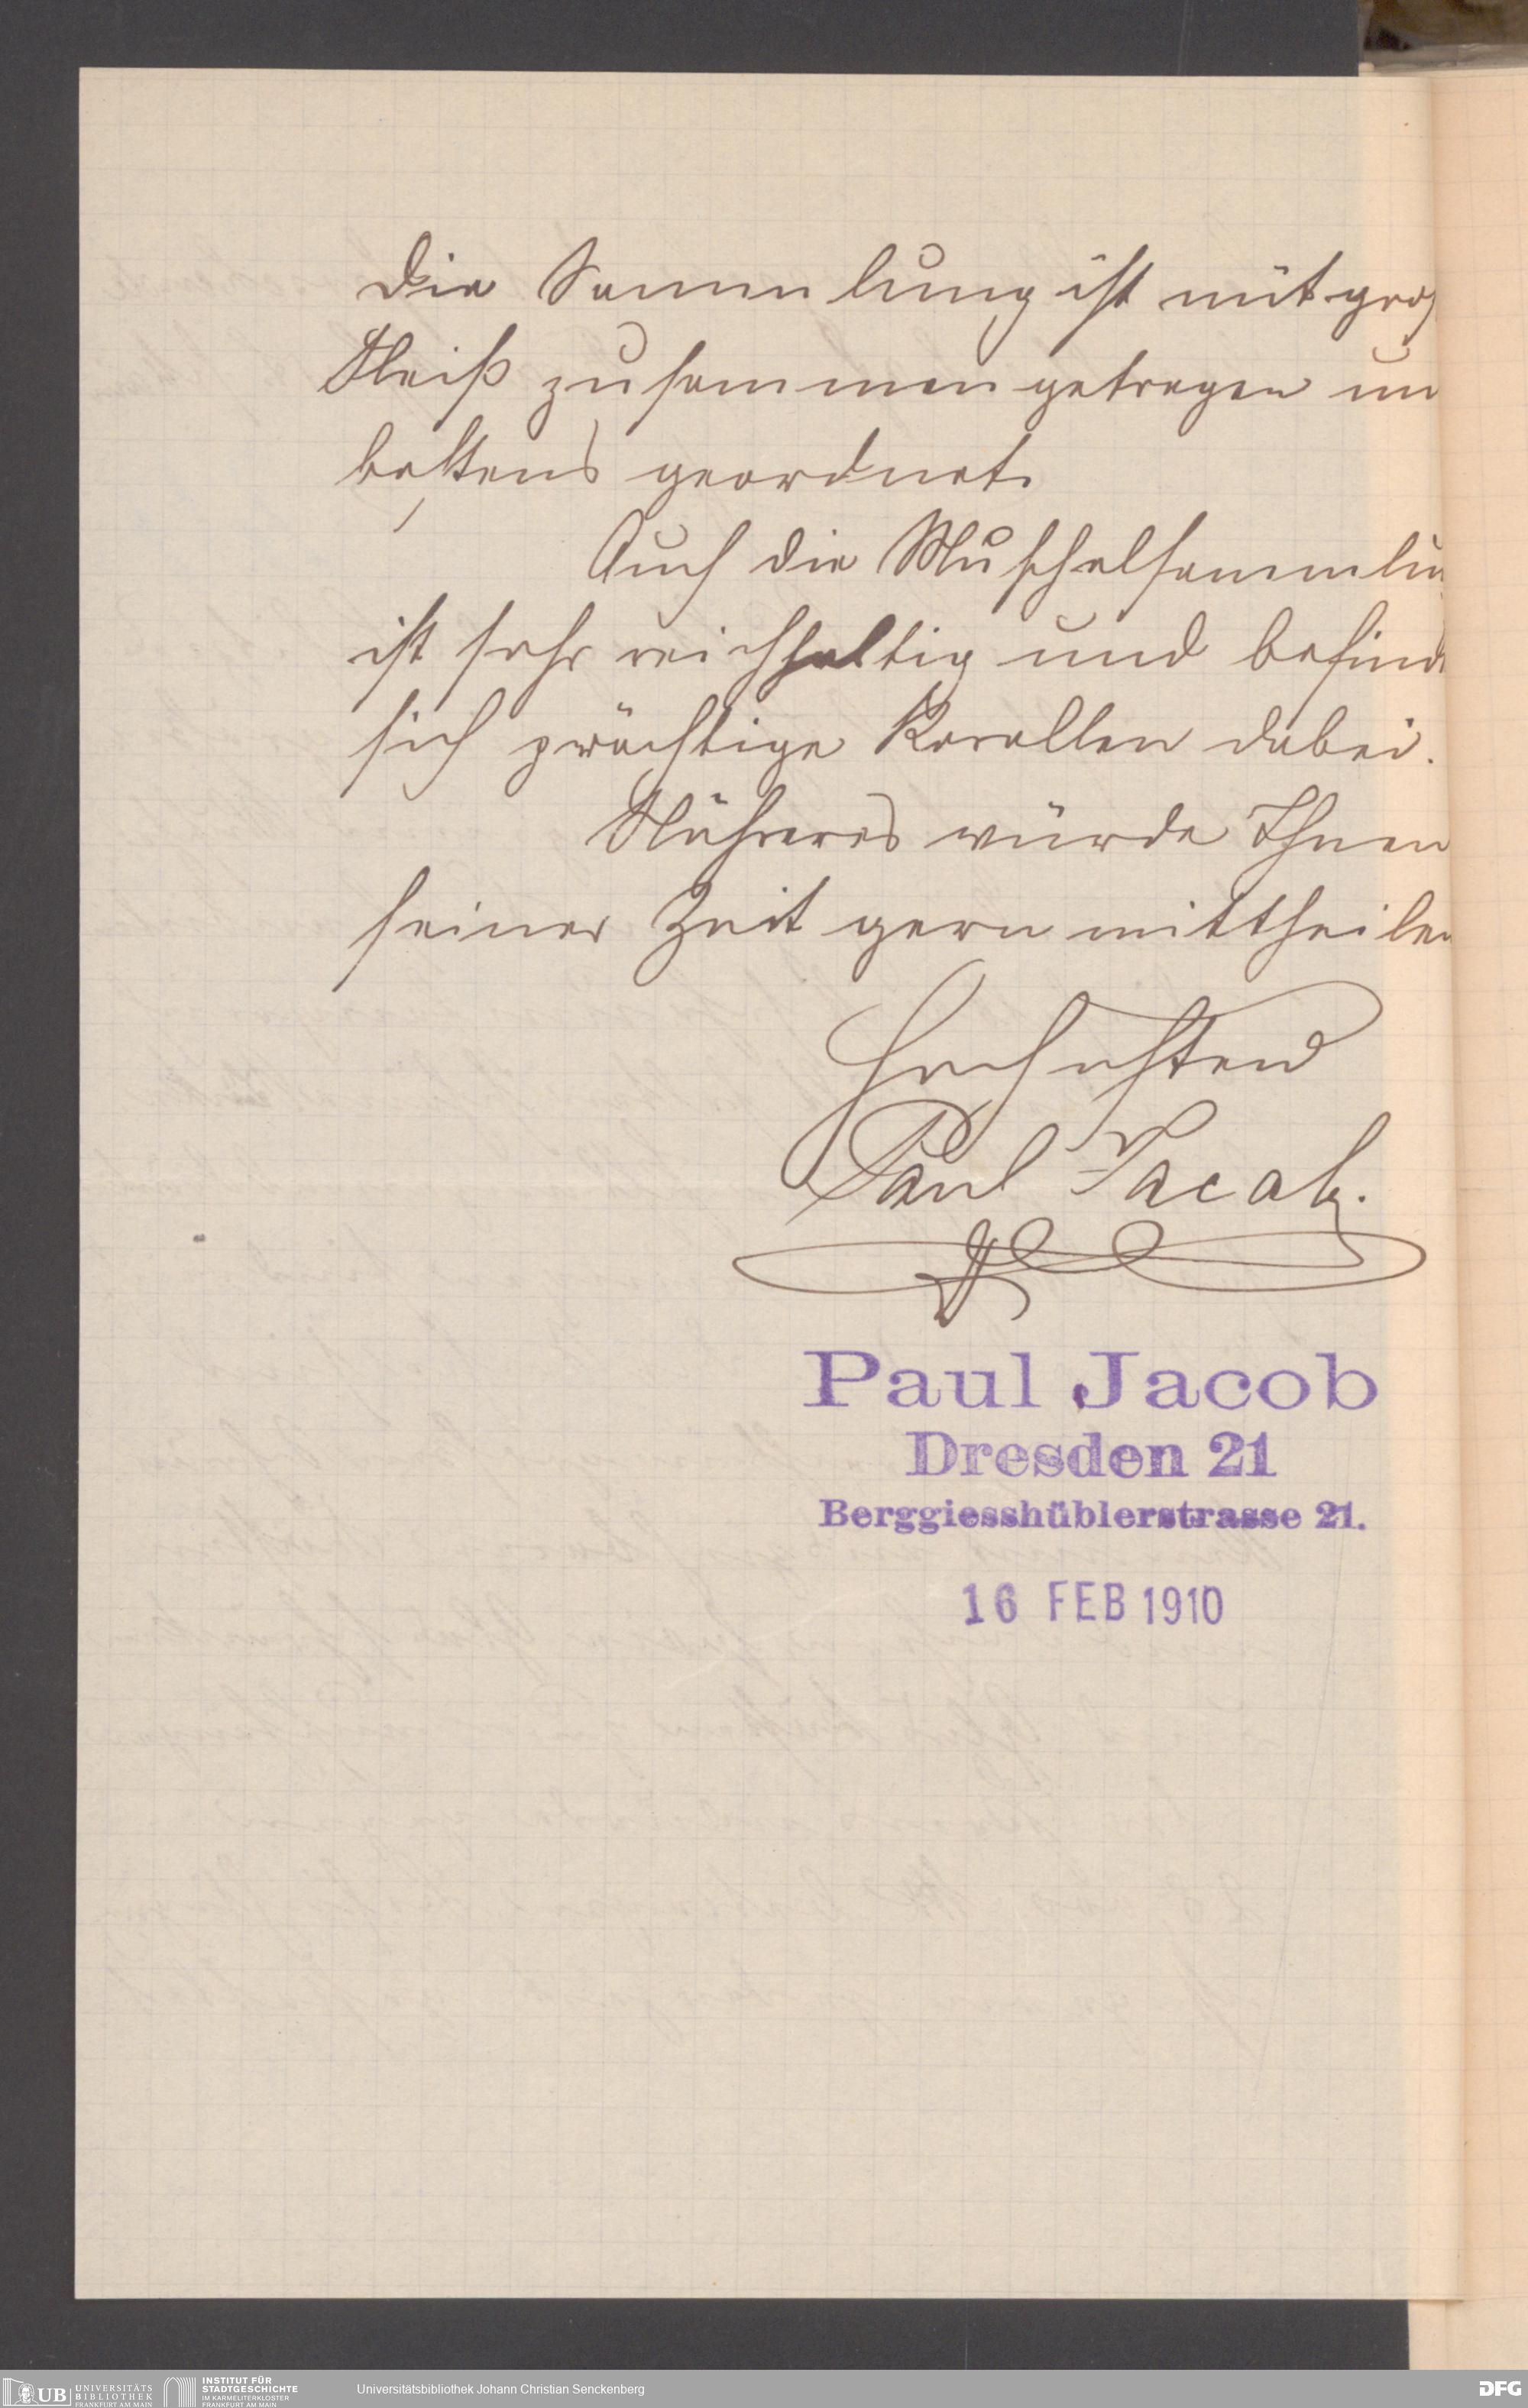 Die Sammlung ist mit groß
Fleiß zusammengetragen un
bestens geordnet.
Auch die Muschelsammlun
ist sehr reichhaltig und befind
sich prächtige Korallen dabei.
Näheres würde Ihnen
seiner Zeit gern mittheilen
Hochachtend
Paul Jacob.
Paul Jacob
Dresden 21
Berggiesshüblerstrasse 21.
16 FEB 1910
UB UNIVERSITÄTS BIBLIOTHEK FRANKFURT AM MAIN
INSTITUT FÜR STADTGESCHICHTE IM KARMELITERKLOSTER FRANKFURT AM MAIN
Universitätsbibliothek Johann Christian Senckenberg
DFG